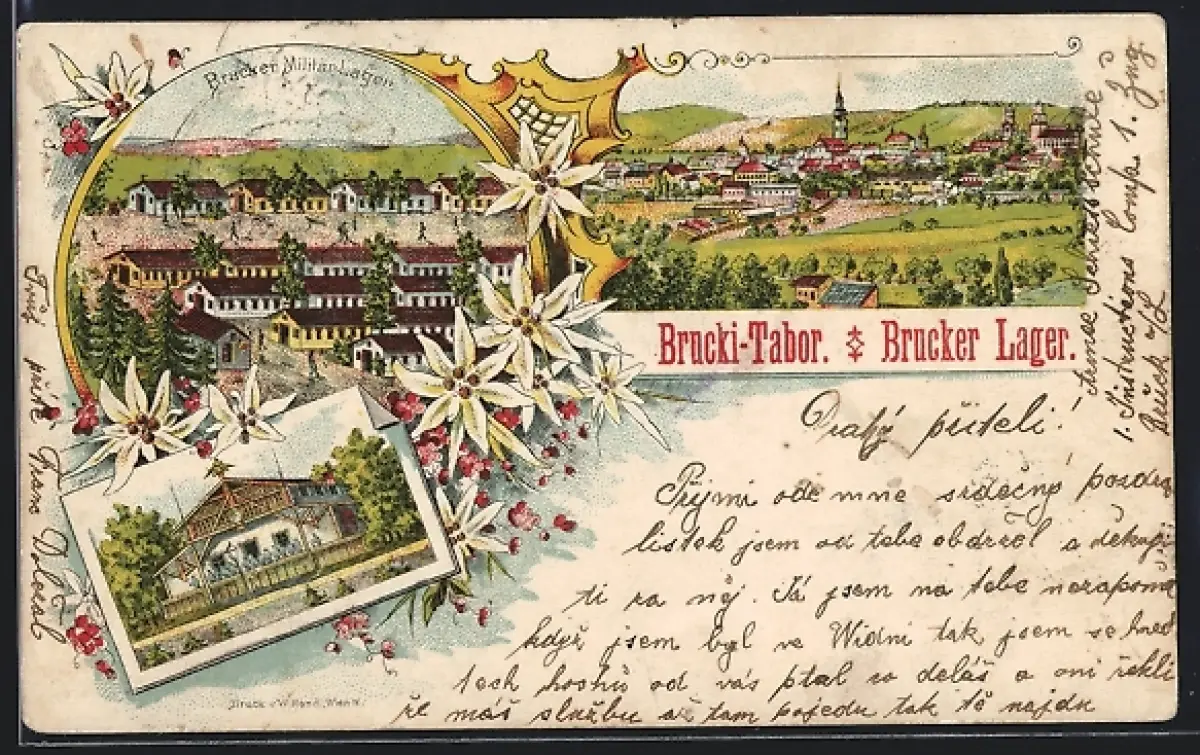 Brucker Militär-Lager.
Brucki-Tabor. Brucker Lager.
Drahý příteli!
Přijmi ode mne srdečný pozdra
lístek jsem od tebe obdržel a děkuji
ti za něj. Já jsem na tebe nezapomě
když jsem byl ve Widni tak jsem se hned
tech hochů od vás ptal co deláš a oni řekli
že máš službu až tam pojedu tak tě najdu
Armee Schiessschule
1. Instructions Comp. 1. Zug.
Bruck a/L
píše Franc
Druck v.